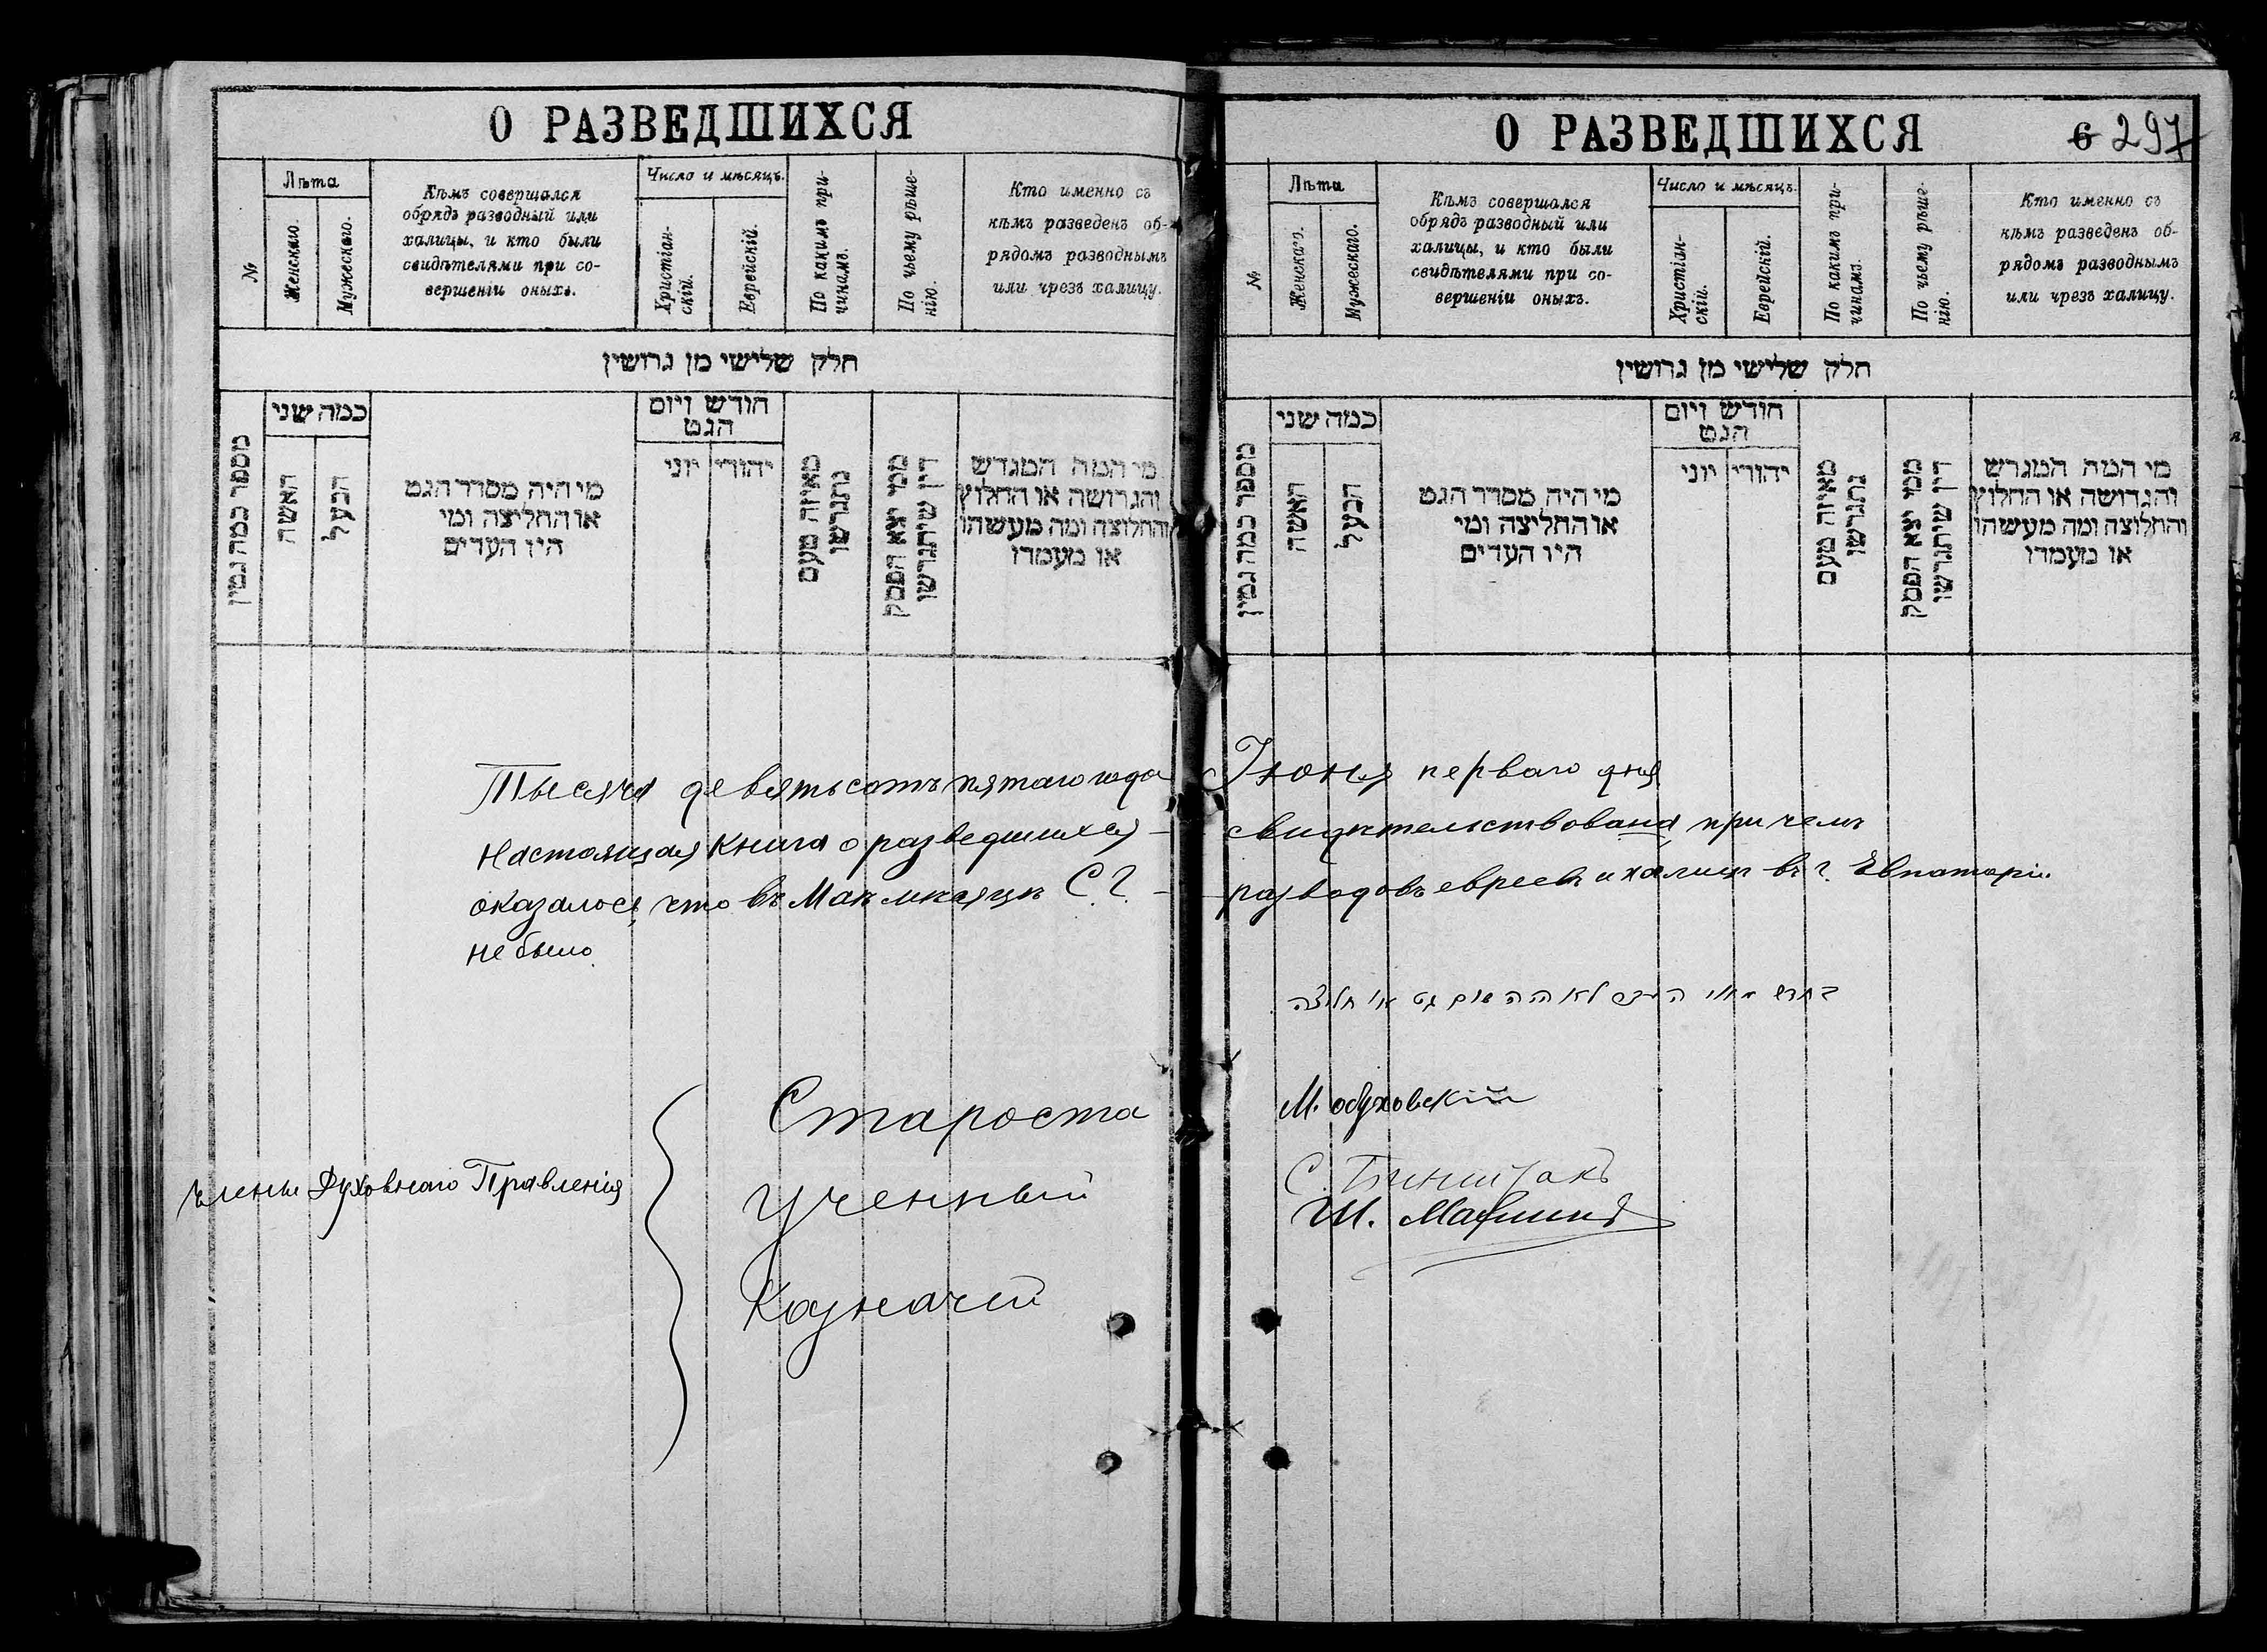 О РАЗВЕДШИХСЯ
№
Лѣта
Женскаго.
Мужескаго.
Кѣмъ совершался
обрядъ разводный или
халицы, и кто были
свидѣтелями при со-
вершеніи оныхъ.
Число и мѣсяцъ.
Христіан-
скій.
Еврейскій.
По какимъ при-
чинамъ.
По чьему рѣше-
нію.
Кто именно съ
кѣмъ разведенъ об-
рядомъ разводнымъ
или чрезъ халицу.
חלק שלישי מן גרושין
מספר כמה גטין
כמה שני
האשה
הבעל
מי היה מסדר הגט
או החליצה ומי
היו העדים
חודש ויום
הגט
יהודי
יוני
מאיזה טעם
נתגרשו
ממי יצא הפסק
דין שיתגרשו
מי המה המגרש
והגרושה או החלוץ
והחלוצה ומה מעשהו
או מעמדו
Тысяча девятьсотъ пятаго года
настоящая книга о разведшихся –
оказалося, что въ Маѣ мѣсяцѣ С.Г. –
не было.
Члены Духовнаго Правленія
Староста
Ученный
Казначей
О РАЗВЕДШИХСЯ
6 297
№
Лѣта
Женскаго.
Мужескаго.
Кѣмъ совершался
обрядъ разводный или
халицы, и кто были
свидѣтелями при со-
вершеніи оныхъ.
Число и мѣсяцъ.
Христіан-
скій.
Еврейскій.
По какимъ при-
чинамъ.
По чьему рѣше-
нію.
Кто именно съ
кѣмъ разведенъ об-
рядомъ разводнымъ
или чрезъ халицу.
חלק שלישי מן גרושין
מספר כמה גטין
כמה שני
האשה
הבעל
מי היה מסדר הגט
או החליצה ומי
היו העדים
חודש ויום
הגט
יהודי
יוני
מאיזה טעם
נתגרשו
ממי יצא הפסק
דין שיתגרשו
מי המה המגרש
והגרושה או החלוץ
והחלוצה ומה מעשהו
או מעמדו
Іюня перваго дня
свидѣтельствована, при чемъ
разводовъ евреевъ и халицъ въ г. Евпаторіи
לא היה שום גט או חליצה
М. Обуховскій
С.
Ш.